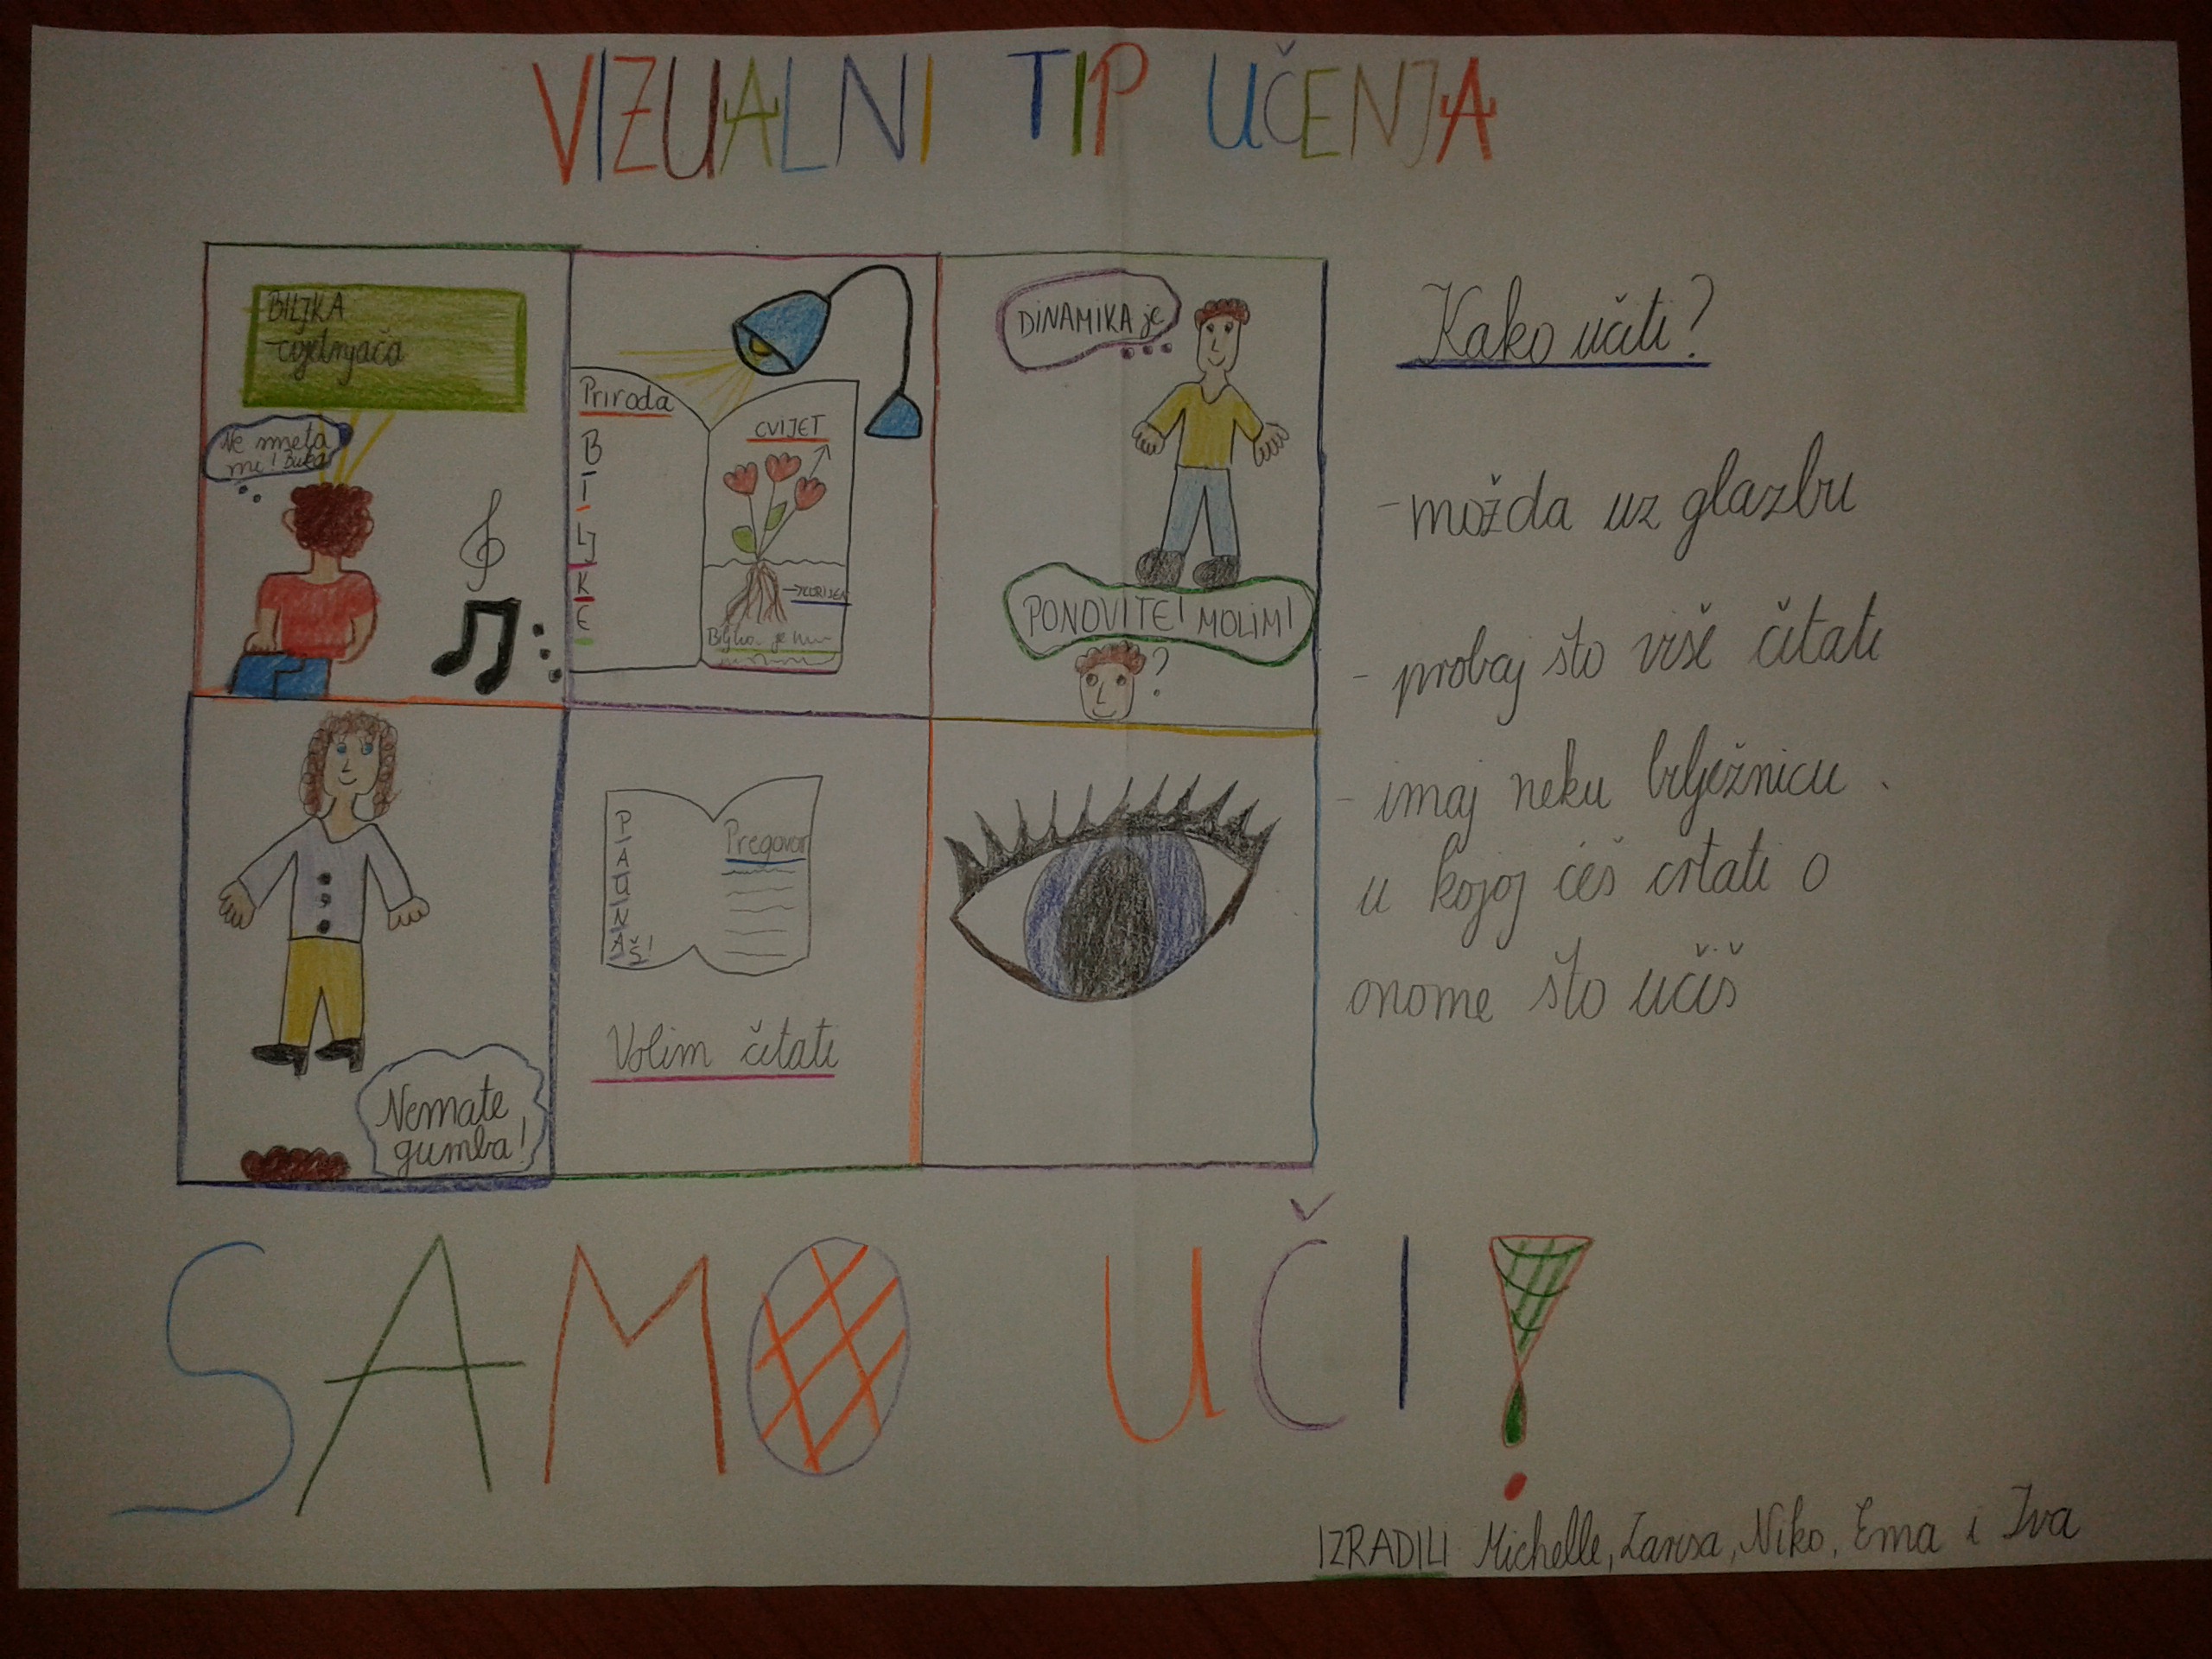 VIZUALNI TIP UČENJA
BILJKA
cvjetnjača
Ne smeta
mi! Buka
Priroda
BILJKE
CVIJET
KORIJEN
Biljka je
DINAMIKA je
PONOVITE! MOLIM!
?
Nemate
gumba!
PAUNAŠ!
Pregovor
Volim čitati
Kako učiti?
- možda uz glazbu
- probaj što više čitati
- imaj neku bilježnicu
u kojoj ćeš crtati o
onome što učiš
SAMO UČI!
IZRADILI Michelle, Larisa, Niko, Ema i Iva